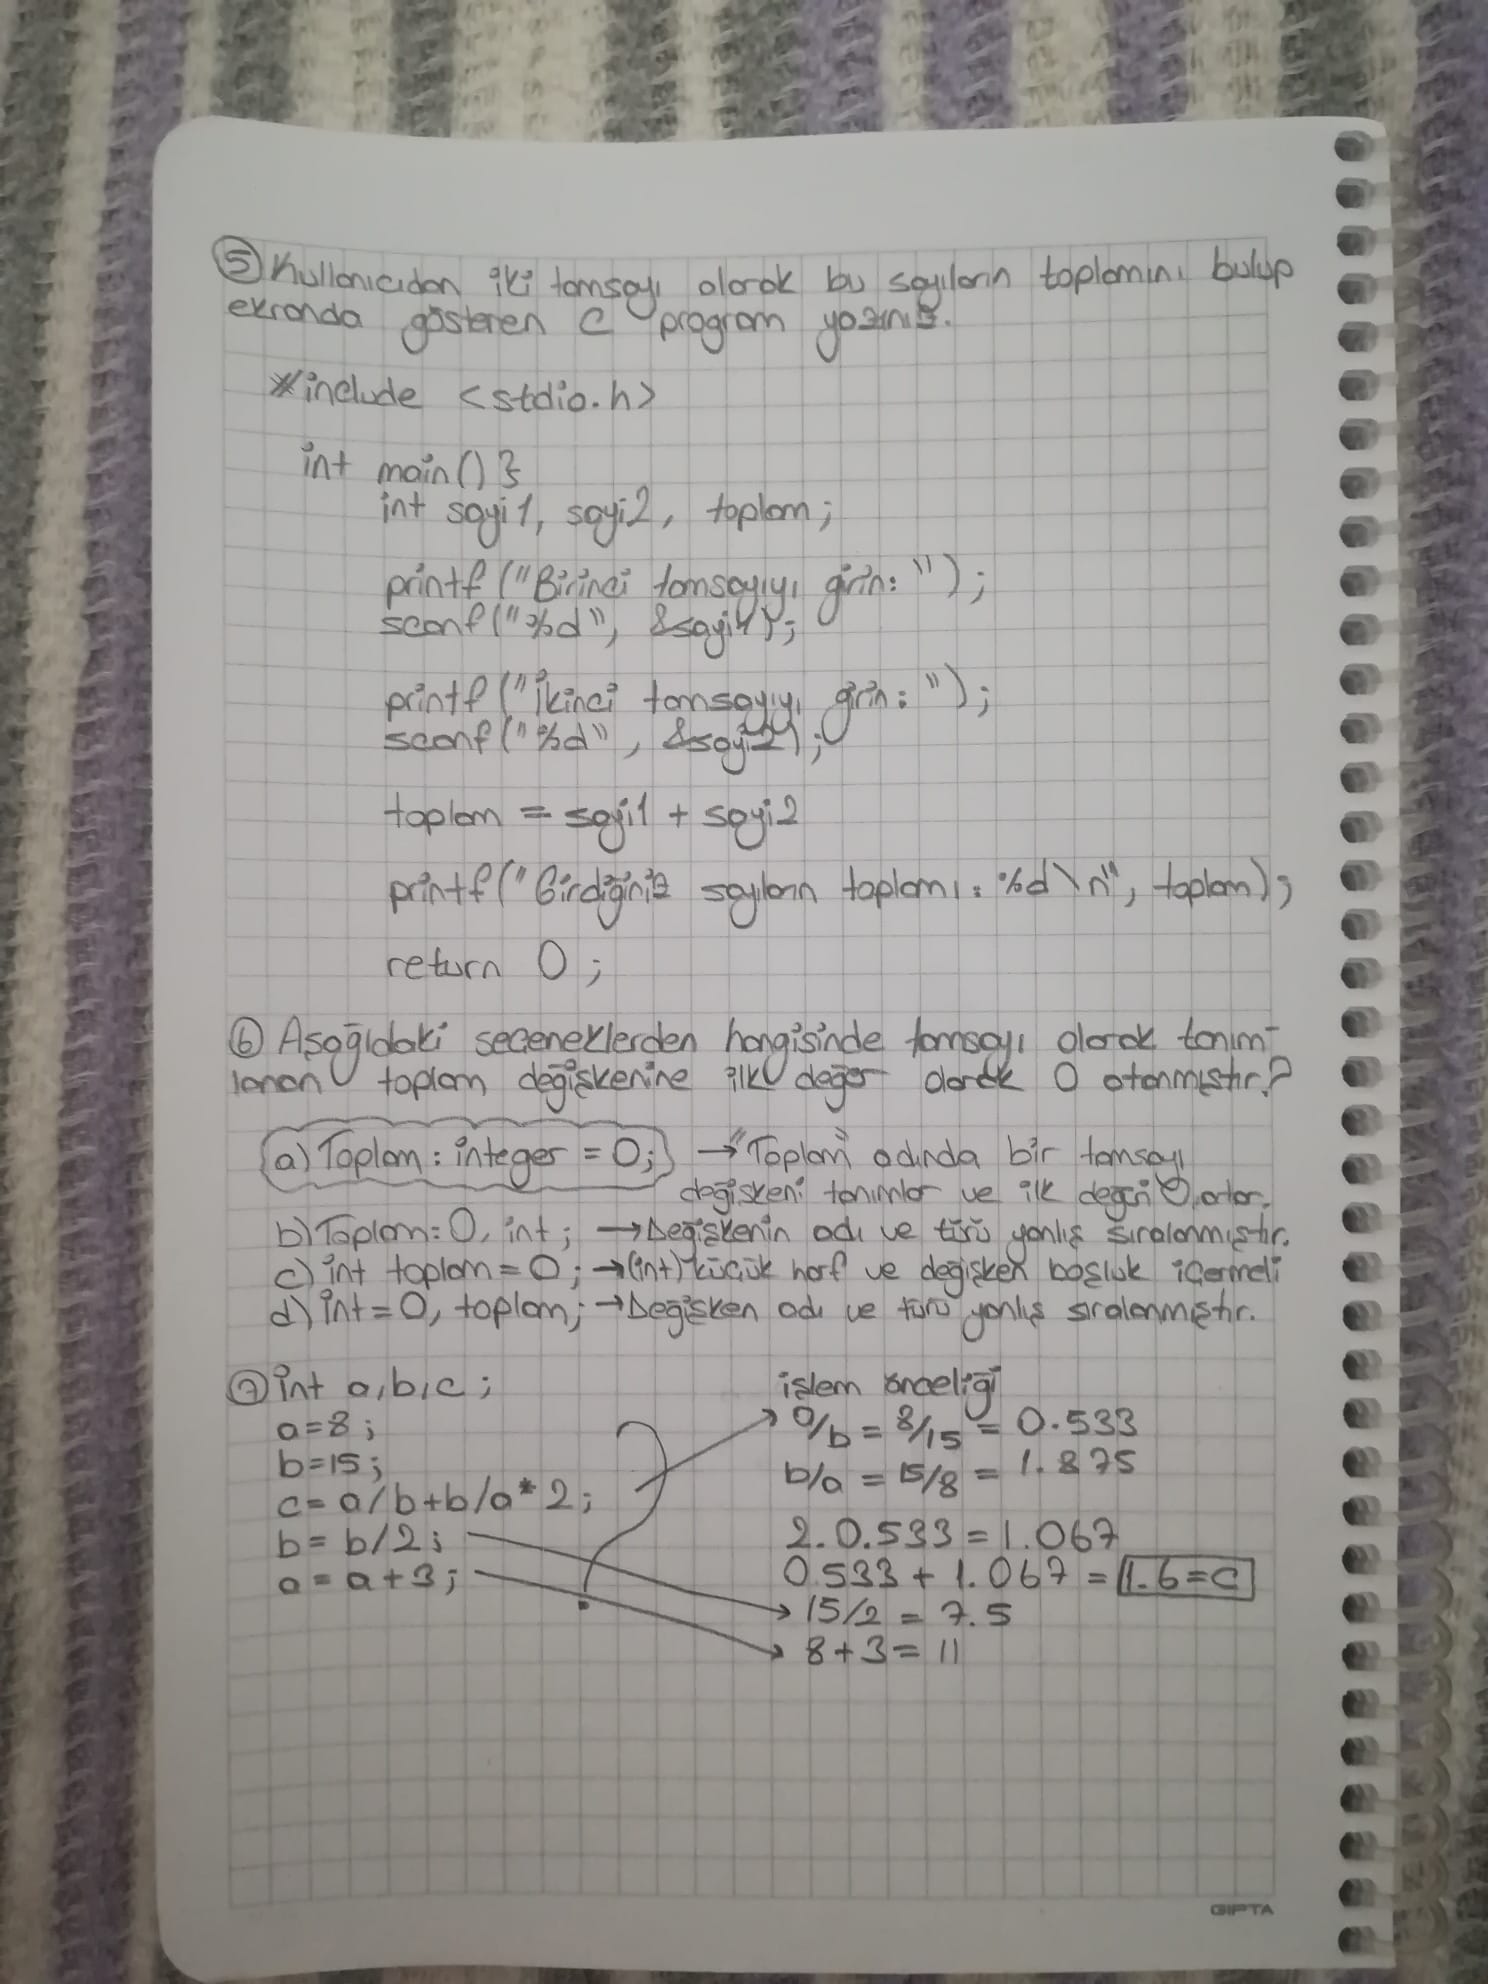 5 Kullanıcıdan iki tamsayı olarak bu sayıların toplamını bulup
ekranda gösteren C program yazınız.
#include <stdio.h>
int main() {
int sayi1, sayi2, toplam;
printf("Birinci tamsayıyı girin: ");
scanf("%d", &sayi1);
printf("İkinci tamsayıyı girin: ");
scanf("%d", &sayi2);
toplam = sayi1 + sayi2
printf("Girdiğiniz sayıların toplamı: %d\n", toplam);
return 0;
6 Aşağıdaki seçeneklerden hangisinde tamsayı olarak tanım-
lanan toplam değişkenine ilk değer olarak 0 atanmıştır?
a) Toplam: integer = 0; → "Toplam" adında bir tamsayı
değişkeni tanımlar ve ilk değeri 0 atar.
b) Toplam: 0, int; → Değişkenin adı ve türü yanlış sıralanmıştır.
c) int toplam = 0; → (int) küçük harf ve değişken boşluk içermeli
d) int = 0, toplam; → Değişken adı ve türü yanlış sıralanmıştır.
7 int a,b,c; işlem önceliği
a=8; a/b = 8/15 = 0.533
b=15; b/a = 15/8 = 1.875
c= a/b+b/a*2; 2.0.533 = 1.067
b= b/2; 0.533 + 1.067 = 1.6=c
a= a+3; 15/2 = 7.5
8+3= 11
GIPTA